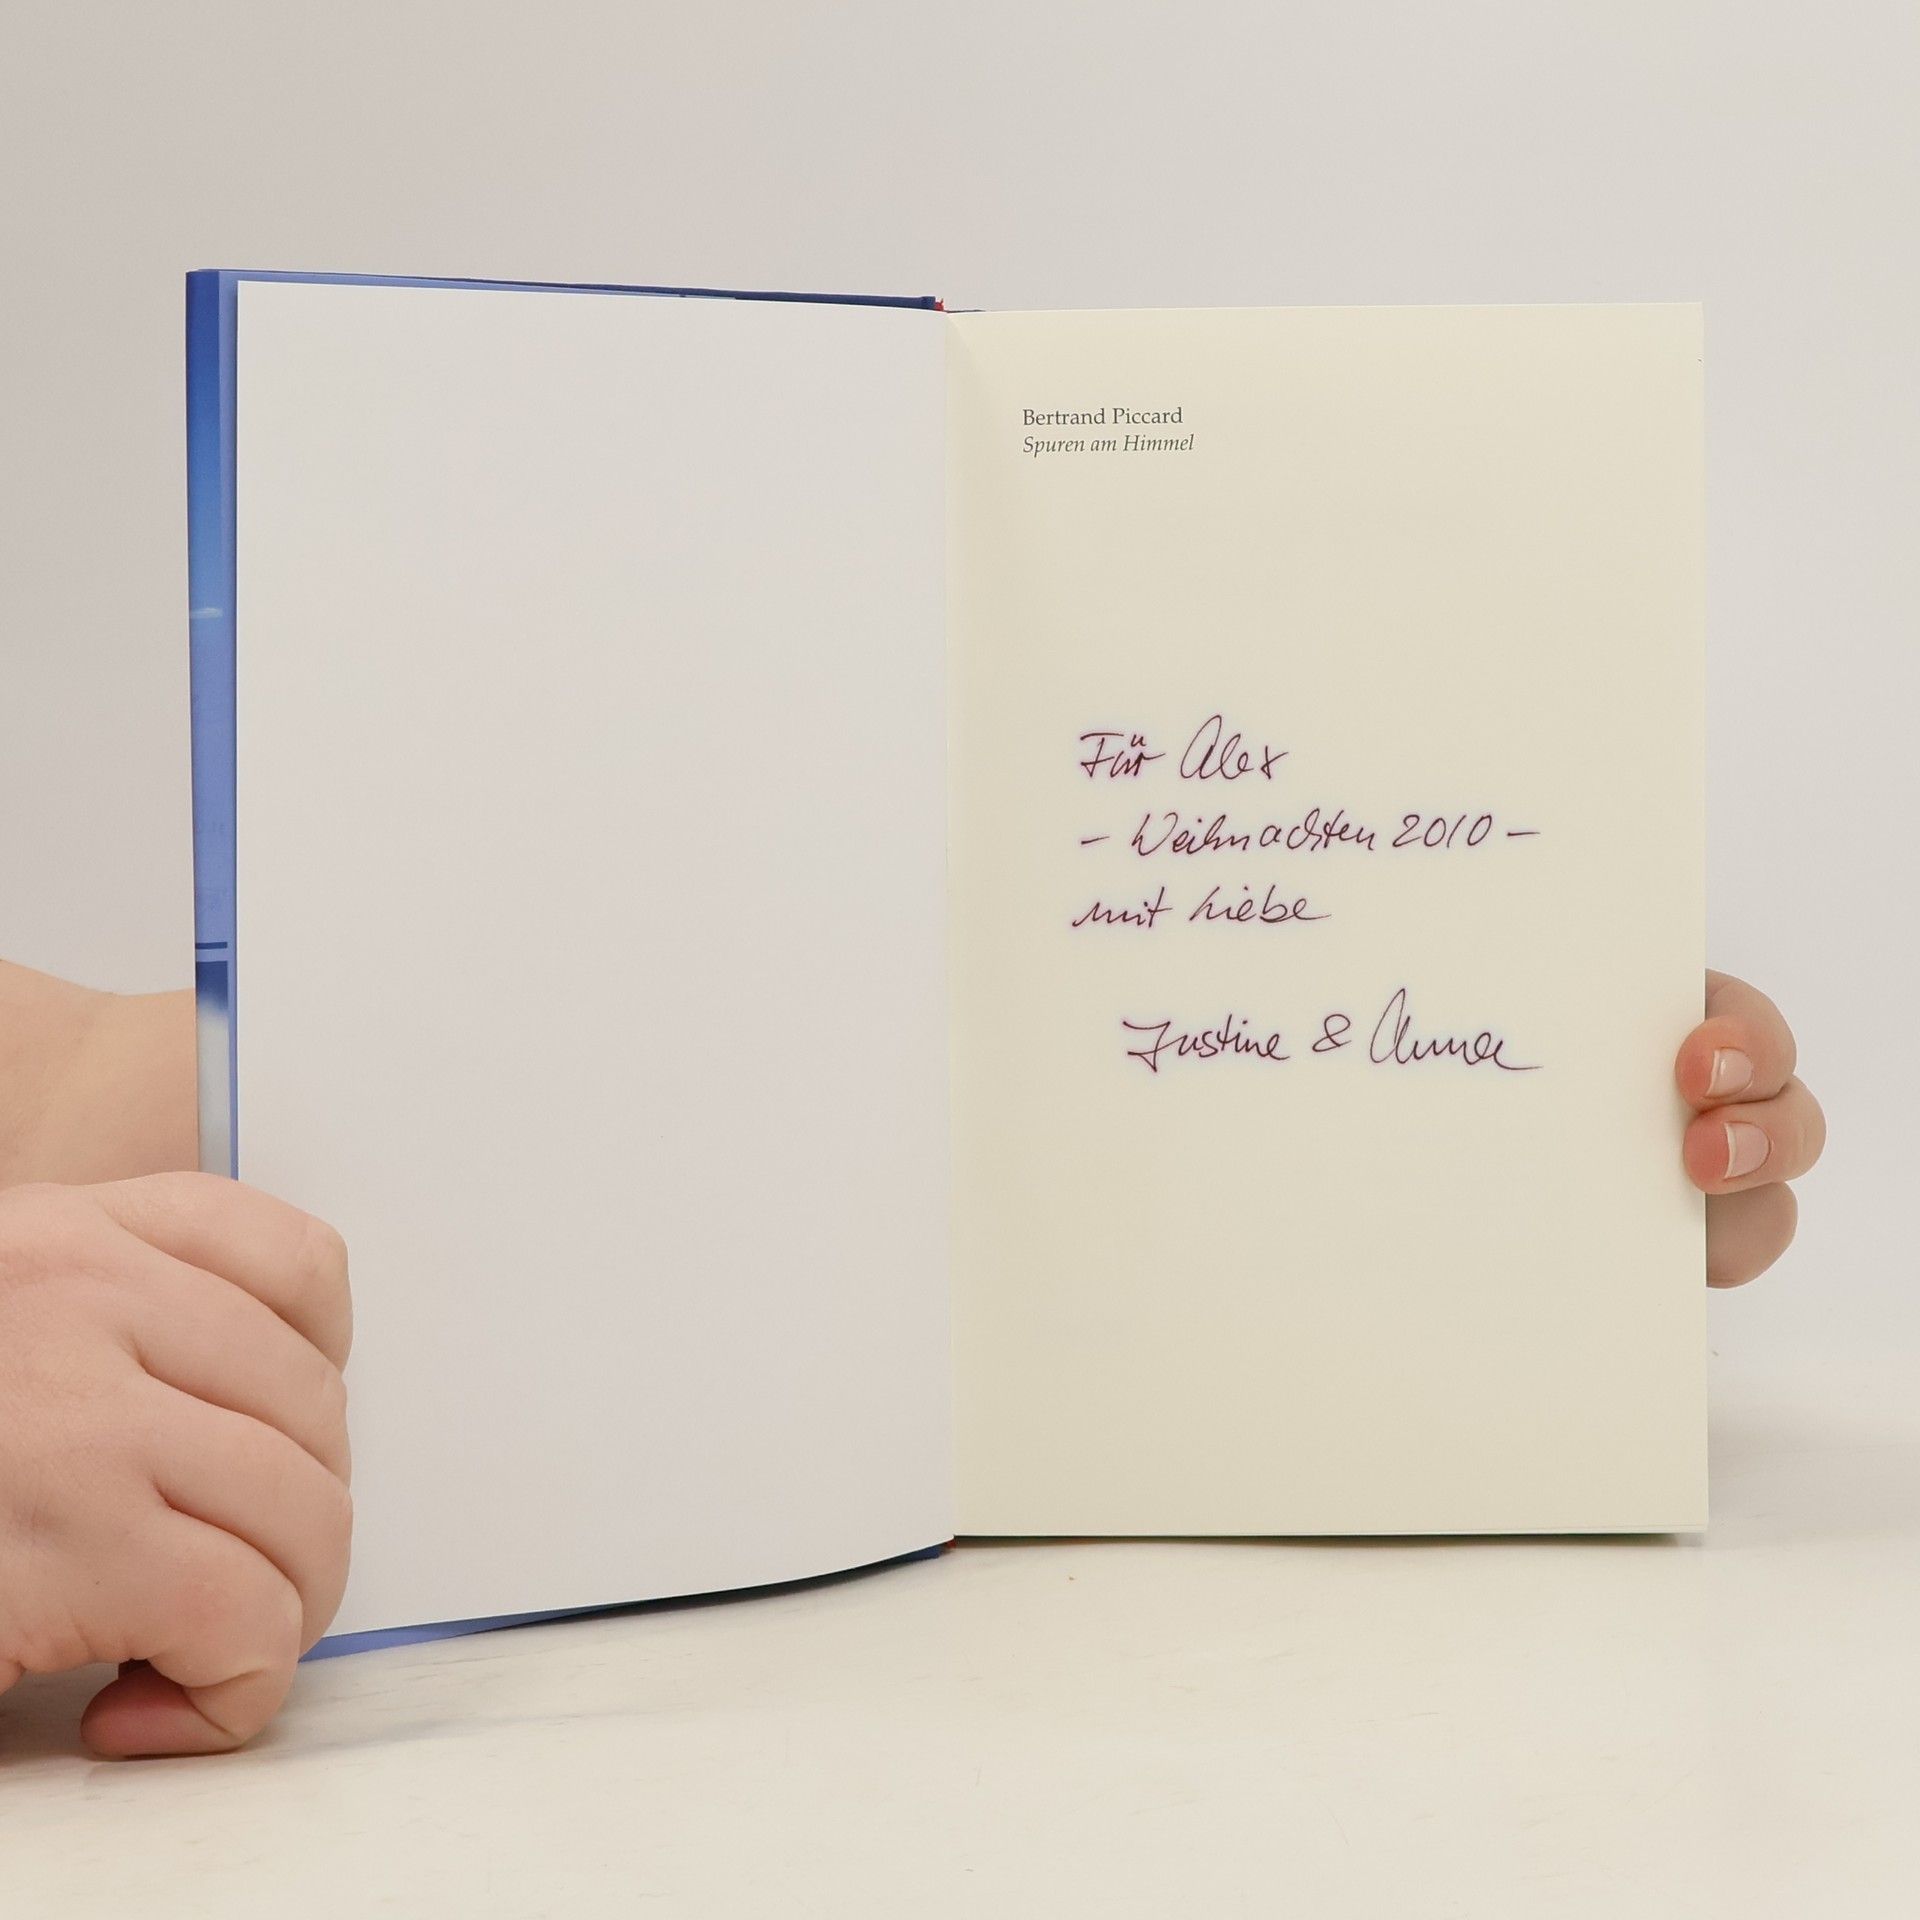 Bertrand Piccard
Spuren am Himmel
Für Alex
– Weihnachten 2010 –
mit Liebe
Justine & Anna